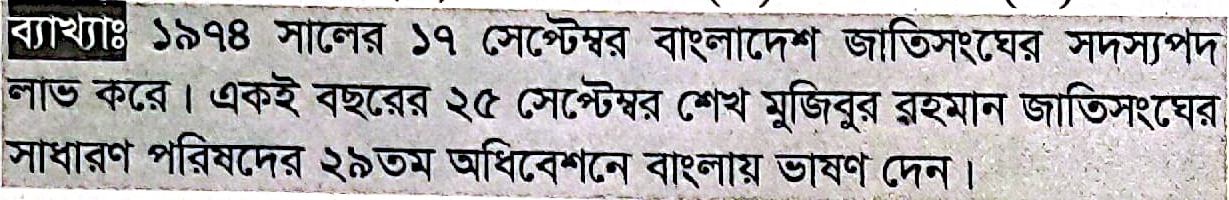 ব্যাখ্যাঃ ১৯৭৪ সালের ১৭ সেপ্টেম্বর বাংলাদেশ জাতিসংঘের সদস্যপদ
লাভ করে। একই বছরের ২৫ সেপ্টেম্বর শেখ মুজিবুর রহমান জাতিসংঘের
সাধারণ পরিষদের ২৯তম অধিবেশনে বাংলায় ভাষণ দেন।